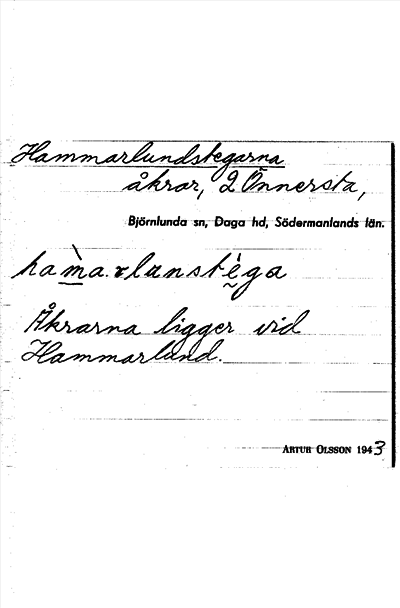 Hammarlundstegarna
åkrar, 2 Önnersta,
Björnlunda sn, Daga hd, Södermanlands län.
hàma.rlunstḛ̀ga
Åkrarna ligger vid
Hammarlund.
ARTUR OLSSON 1943